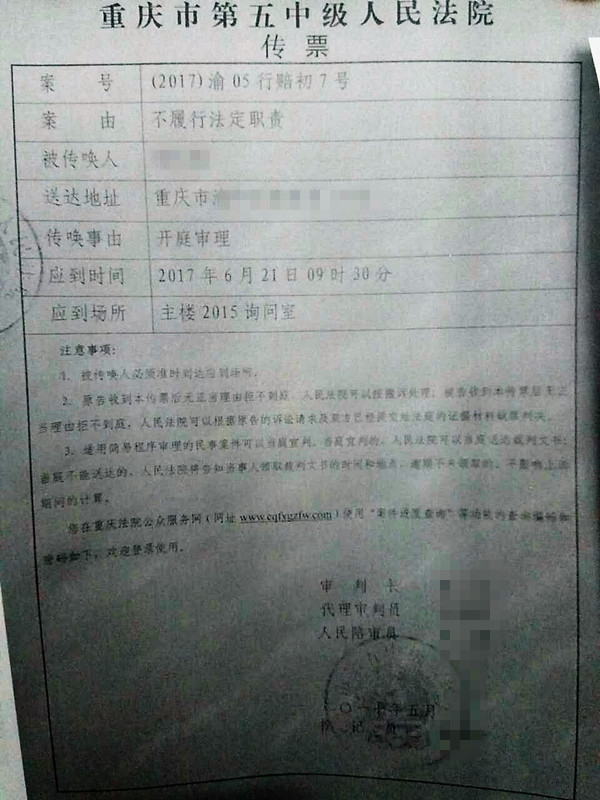 重庆市第五中级人民法院
传票
案 号 (2017)渝 05 行赔初 7 号
案 由 不履行法定职责
被传唤人
送达地址 重庆市渝
传唤事由 开庭审理
应到时间 2017 年 6 月 21 日 09 时 30 分
应到场所 主楼 2015 询问室
注意事项:
1、被传唤人必须准时到达应到场所。
2、原告收到本传票后无正当理由拒不到庭，人民法院可以按撤诉处理；被告收到本传票后无正
当理由拒不到庭，人民法院可以根据原告的诉讼请求及双方已经提交给法庭的证据材料缺席判决。
3、适用简易程序审理的民事案件可以当庭宣判。当庭宣判的，人民法院可以当庭送达裁判文书；
当庭不能送达的，人民法院将告知当事人领取裁判文书的时间和地点，逾期不来领取的，不影响上诉
期间的计算。
您在重庆法院公众服务网（网址 www.cqfygzfw.com）使用“案件进度查询”等功能的查询编码和
密码如下，欢迎登录使用。
审 判 长
代理审判员
人民陪审员
二〇一七年五月
书 记 员